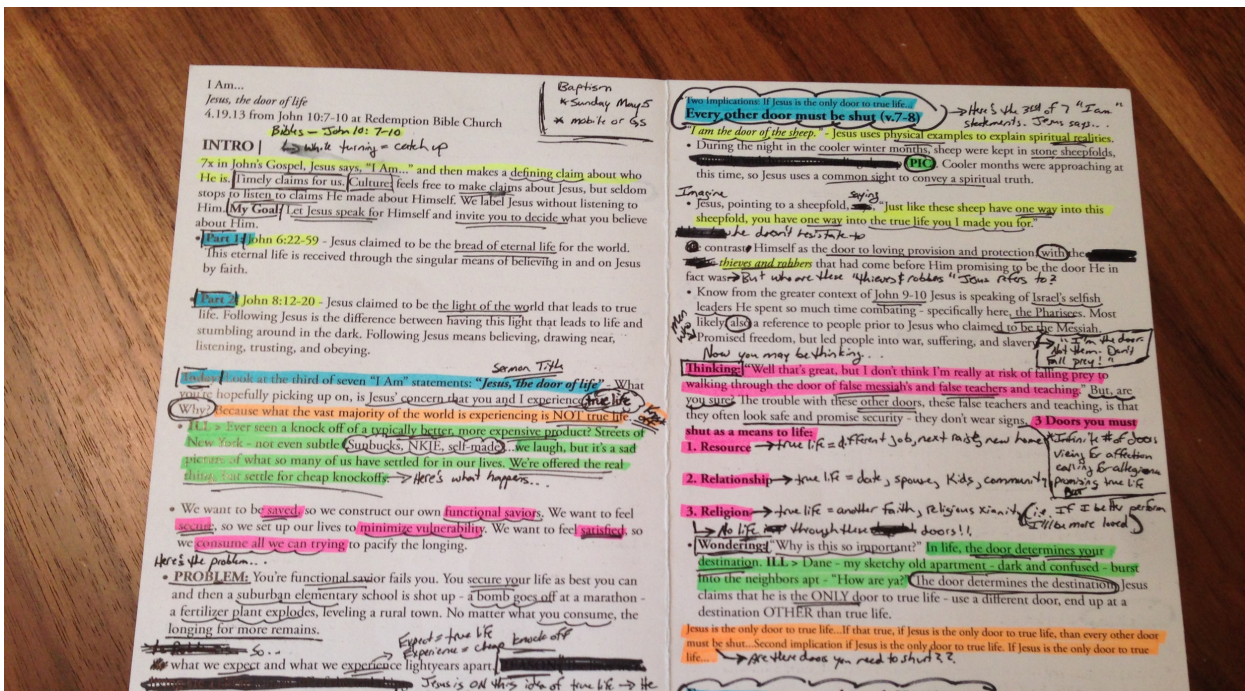 I Am...
Jesus, the door of life
4.19.13 | from John 10:7-10 at Redemption Bible Church
Bibles - John 10: 7-10
INTRO | ↳ while turning = catch up
Baptism
* Sunday May 5
* mobile or GS
7x in John's Gospel, Jesus says, "I Am..." and then makes a defining claim about who
He is. Timely claims for us. Culture: feels free to make claims about Jesus, but seldom
stops to listen to claims He made about Himself. We label Jesus without listening to
Him. My Goal: Let Jesus speak for Himself and invite you to decide what you believe
about Him.
• Part 1: John 6:22-59 - Jesus claimed to be the bread of eternal life for the world.
This eternal life is received through the singular means of believing in and on Jesus
by faith.
• Part 2: John 8:12-20 - Jesus claimed to be the light of the world that leads to true
life. Following Jesus is the difference between having this light that leads to life and
stumbling around in the dark. Following Jesus means believing, drawing near,
listening, trusting, and obeying.
Sermon Title
Today: Look at the third of seven "I Am" statements: "Jesus, The door of life" - What
you're hopefully picking up on, is Jesus' concern that you and I experience true life.
Why? Because what the vast majority of the world is experiencing is NOT true life. knock off
• ILL > Ever seen a knock off of a typically better, more expensive product? Streets of
New York - not even subtle (Sunbucks, NKIE, self-made)...we laugh, but it's a sad
picture of what so many of us have settled for in our lives. We're offered the real
thing but settle for cheap knockoffs. → Here's what happens...
• We want to be saved, so we construct our own functional saviors. We want to feel
secure, so we set up our lives to minimize vulnerability. We want to feel satisfied, so
we consume all we can trying to pacify the longing.
Here's the problem...
• PROBLEM: You're functional savior fails you. You secure your life as best you can
and then a suburban elementary school is shot up - a bomb goes off at a marathon -
a fertilizer plant explodes, leveling a rural town. No matter what you consume, the
longing for more remains.
So...
Expect = true life
Experience = cheap knock off
what we expect and what we experience lightyears apart.
Jesus is ON this idea of true life → He
Two Implications: If Jesus is the only door to true life...
Every other door must be shut (v.7-8)
→ Here's the 3rd of 7 "I am"
statements. Jesus says...
"I am the door of the sheep." - Jesus uses physical examples to explain spiritual realities.
• During the night in the cooler winter months, sheep were kept in stone sheepfolds,
PIC. Cooler months were approaching at
this time, so Jesus uses a common sight to convey a spiritual truth.
Imagine saying
• Jesus, pointing to a sheepfold, "Just like these sheep have one way into this
sheepfold, you have one way into the true life you I made you for."
he doesn't hesitate to
contrast Himself as the door to loving provision and protection, with the
thieves and robbers that had come before Him promising to be the door He in
fact was. → But who are these "thieves & robbers" Jesus refers to?
• Know from the greater context of John 9-10 Jesus is speaking of Israel's selfish
leaders He spent so much time combating - specifically here, the Pharisees. Most
likely, also a reference to people prior to Jesus who claimed to be the Messiah.
men who
Promised freedom, but led people into war, suffering, and slavery
→ "I'm the door.
Not them. Don't
fall prey!"
Now you may be thinking...
Thinking: "Well that's great, but I don't think I'm really at risk of falling prey to
walking through the door of false messiah's and false teachers and teaching." But, are
you sure? The trouble with these other doors, these false teachers and teaching, is that
they often look safe and promise security - they don't wear signs. 3 Doors you must
shut as a means to life:
1. Resource → true life = different job, next raise, new home
2. Relationship → true life = date, spouse, kids, community
3. Religion → true life = another faith, religious xianity (i.e. If I better perform
I'll be more loved)
* Infinite # of doors
vieing for affection
calling for allegiance
promising true life
But
↳ No life through these doors!!
• Wondering: "Why is this so important?" In life, the door determines your
destination. ILL > Dane - my sketchy old apartment - dark and confused - burst
into the neighbors apt - "How are ya?" The door determines the destination. Jesus
claims that he is the ONLY door to true life - use a different door, end up at a
destination OTHER than true life.
Jesus is the only door to true life...If that true, if Jesus is the only door to true life, than every other door
must be shut...Second implication if Jesus is the only door to true life. If Jesus is the only door to true
life... → Are there doors you need to shut??